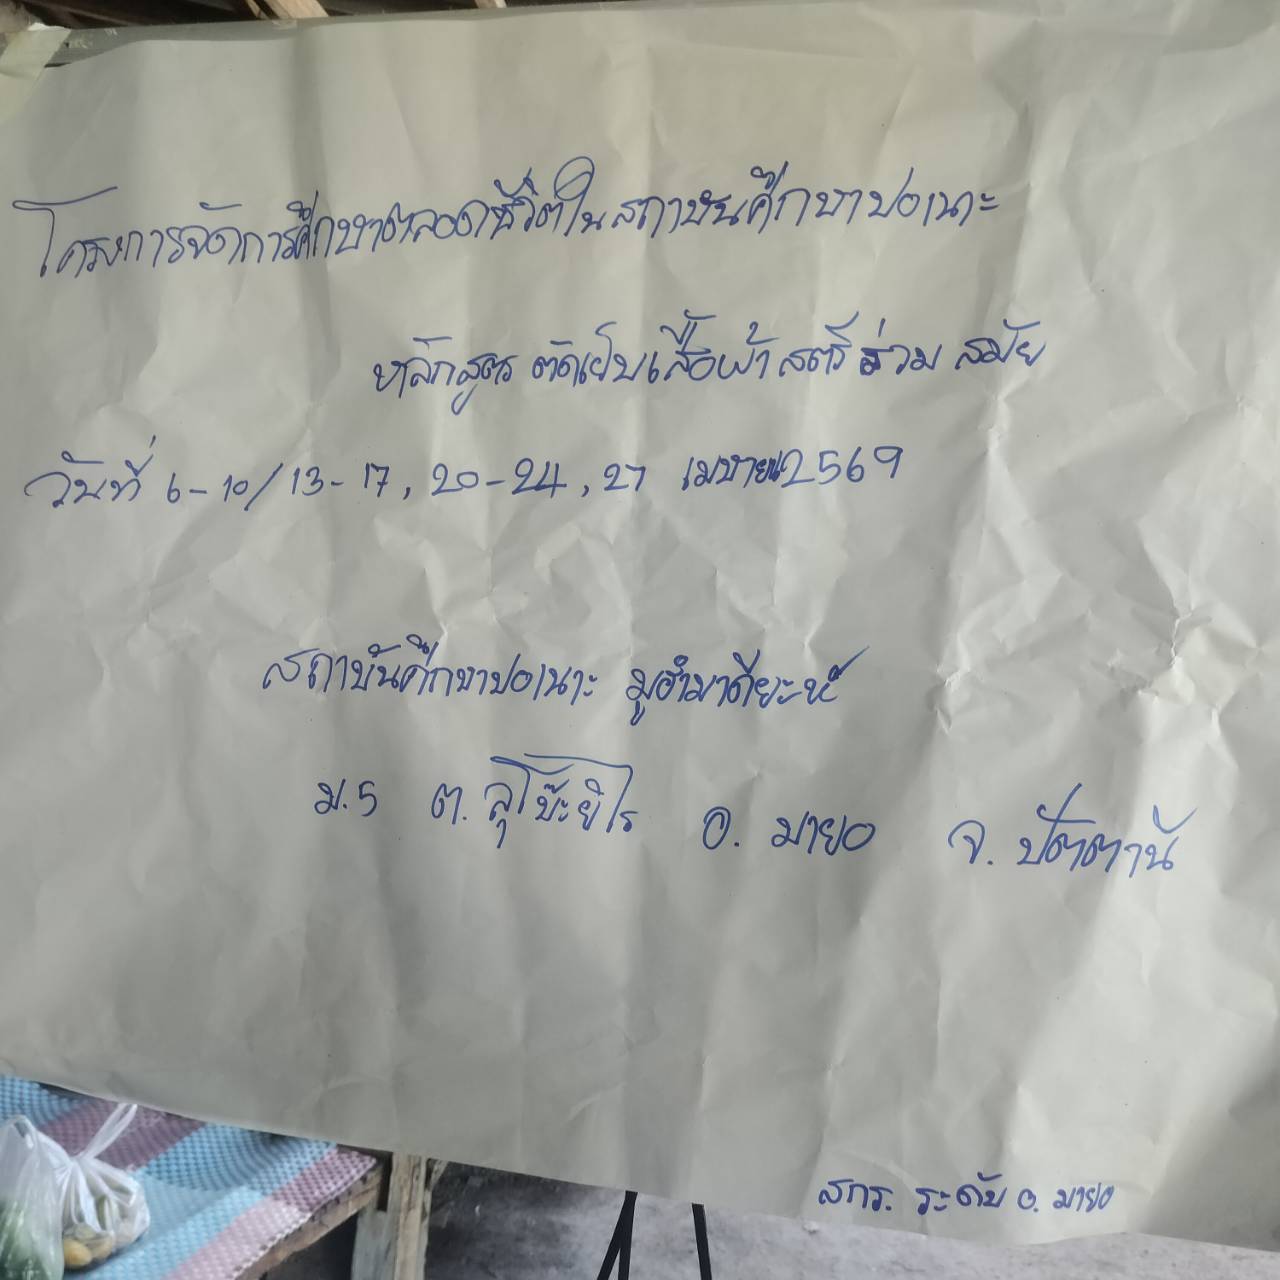 โครงการจัดการศึกษาตลอดชีวิตในสถาบันศึกษาปอเนาะ
หลักสูตร ตัดเย็บเสื้อผ้า สตรี ร่วม สมัย
วันที่ 6-10/13-17, 20-24, 27 เมษายน 2569
สถาบันศึกษาปอเนาะ มูฮำมาดียะห์
ม.5 ต. ลุโบ๊ะยิไร อ. มายอ จ. ปัตตานี
สกร. ระดับ อ. มายอ